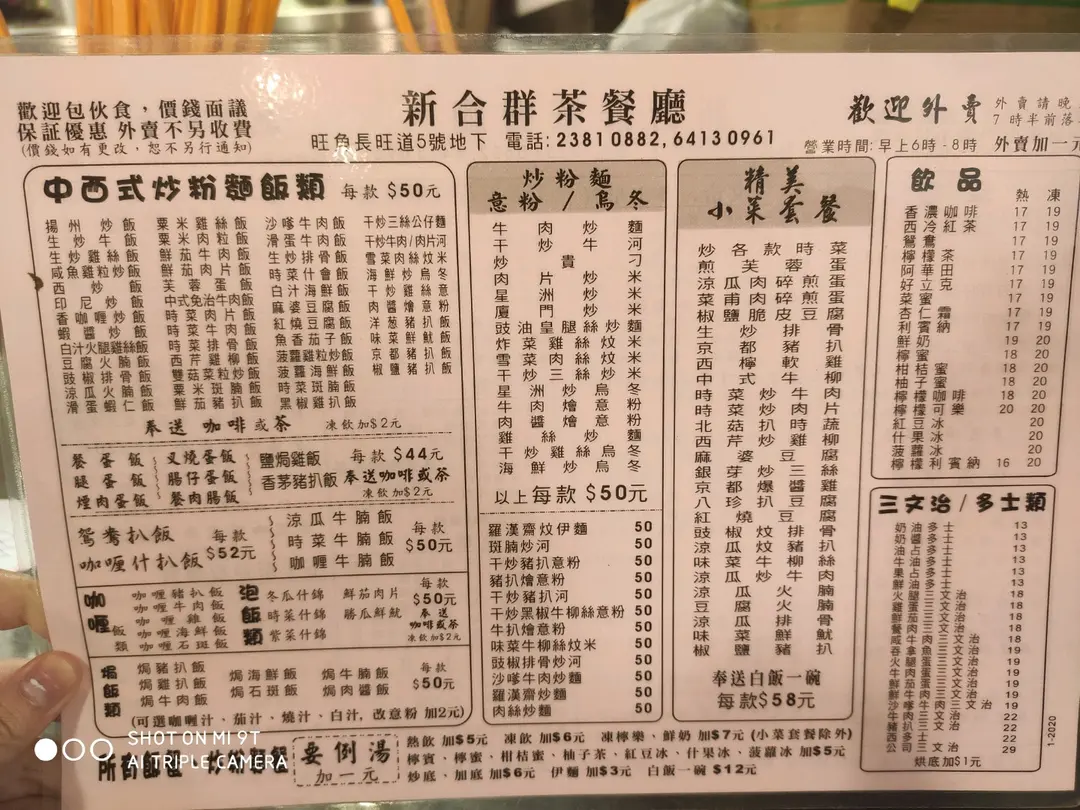 歡迎包伙食，價錢面議
保証優惠 外賣不另收費
(價錢如有更改，恕不另行通知)
新合群茶餐廳
旺角長旺道5號地下 電話: 2381 0882, 6413 0961
歡迎外賣
外賣請晚
7時半前落
營業時間: 早上6時 - 8時 外賣加一元
中西式炒粉麵飯類 每款 $50元
揚州炒飯 粟米雞絲飯 沙嗲牛肉飯 干炒三絲公仔麵
生炒牛飯 粟米肉粒飯 滑蛋牛肉飯 干炒牛肉/肉片河
生炒雞絲飯 鮮茄牛肉飯 生炒排骨飯 雪菜肉絲炆米
咸魚雞粒炒飯 鮮茄肉片飯 時菜什會飯 海鮮炒烏冬
西炒飯 芙蓉蛋飯 白汁海鮮飯 干炒雞絲意
印尼炒飯 中式免治牛肉飯 麻婆豆腐飯 肉醬燴意粉
香咖喱炒飯 時菜肉片飯 紅燒豆腐飯 洋葱豬扒飯
蝦醬炒飯 時菜牛肉飯 魚香茄子飯 味菜鮮魷飯
白汁火腿雞絲飯 時菜排骨飯 菠蘿雞粒炒飯 京都豬扒飯
豆腐火腩飯 西芹雞柳飯 菠蘿海鮮飯 椒鹽豬扒飯
豉椒排骨飯 雙菇菜粒炒飯 紅燒斑腩飯
涼瓜火腩飯 粟米斑腩飯 時菜斑腩飯
滑蛋蝦仁飯 鮮茄豬扒飯 黑椒雞扒飯
奉送 咖啡或茶 凍飲加$2元
餐蛋飯 叉燒蛋飯 鹽焗雞飯 每款 $44元
腿蛋飯 腸仔蛋飯 香茅豬扒飯 奉送咖啡或茶
煙肉蛋飯 餐肉腸飯 凍飲加$2元
鴛鴦扒飯 每款
咖喱什扒飯 $52元
涼瓜牛腩飯 每款
時菜牛腩飯 $50元
咖喱牛腩飯
咖喱飯類
咖喱豬扒飯
咖喱牛肉飯
咖喱雞飯
咖喱海鮮飯
咖喱石斑飯
泡飯類
冬瓜什錦 鮮茄肉片
時菜什錦 勝瓜鮮魷
紫菜什錦
每款
$50元
奉送
咖啡或茶
凍飲加$2元
焗飯類
焗豬扒飯
焗雞扒飯 焗海鮮飯 焗牛腩飯
焗牛肉飯 焗石斑飯 焗肉醬飯
每款
$50元
(可選咖喱汁、茄汁、燒汁、白汁, 改意粉 加2元)
炒粉麵
意粉 / 烏冬
牛肉炒麵
干炒牛河
炒貴刁
肉片炒米
星洲炒米
廈門炒米
豉油皇腿絲炒麵
炸菜雞絲炆米
雪菜肉絲炆米
干炒三絲炒米
星洲炒烏冬
牛肉燴意粉
肉醬燴意粉
雞絲炒麵
干炒雞絲烏冬
海鮮炒烏冬
以上每款 $50元
羅漢齋炆伊麵 50
斑腩炒河 50
干炒豬扒意粉 50
豬扒燴意粉 50
干炒豬扒河 50
干炒黑椒牛柳絲意粉 50
牛扒燴意粉 50
味菜牛柳絲炆米 50
豉椒排骨炒河 50
沙嗲牛肉炒麵 50
羅漢齋炒麵 50
肉絲炒麵 50
精美
小菜套餐
炒各款時菜
煎芙蓉蛋
涼瓜肉碎煎蛋
菜甫肉碎煎蛋
椒鹽脆皮豆腐
生炒排骨
京都豬扒
西檸軟雞
中式牛柳
時菜炒牛肉
時菜炒肉片
北菇扒時蔬
西芹炒雞柳
麻婆豆腐
銀芽炒三絲
京都爆醬雞
八珍扒豆腐
紅燒豆腐
豉椒炆排骨
涼瓜炆豬扒
味菜牛柳絲
涼瓜炒牛肉
涼瓜火腩
豆腐火腩
涼瓜排骨
味菜鮮魷
椒鹽豬扒
奉送白飯一碗
每款$58元
飲品
熱 凍
香濃咖啡 17 19
西冷紅茶 17 19
鴛鴦 17 19
檸檬茶 17 19
阿華田 17 19
好立克 17 19
菜蜜 17 19
杏仁霜 17 19
利賓納 17 19
鮮奶 19 20
檸蜜 18 20
柑桔蜜 18 20
柚子蜜 18 20
檸檬咖啡 18 20
檸檬可樂 20 20
紅豆冰 20
什果冰 20
菠蘿冰 20
檸檬利賓納 16 20
三文治 / 多士類
奶油多士 13
奶醬多士 13
油占多士 13
牛油多士 13
果占多士 13
鮮油多士 13
火腿三文治 18
雞蛋三文治 18
鮮茄三文治 18
餐肉三文治 18
咸牛三文治 18
吞拿魚三文治 19
火腿蛋三文治 19
鮮牛肉三文治 19
沙嗲牛三文治 19
公司三文治 29
烘底加$1元
1-2020
要倒湯
加一元
熱飲 加$5元 凍飲 加$6元 凍檸樂、鮮奶 加$7元 (小菜套餐除外)
檸賓、檸蜜、柑桔蜜、柚子茶、紅豆冰、什果冰、菠蘿冰 加$5元
炒底、加底 加$6元 伊麵 加$3元 白飯一碗 $12元
SHOT ON MI 9T
AI TRIPLE CAMERA